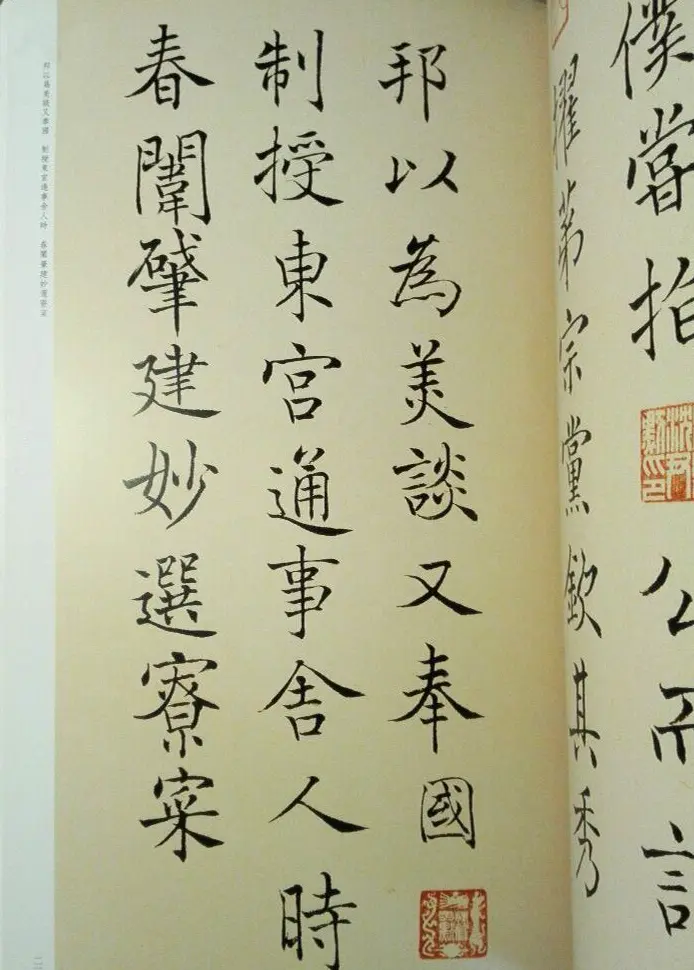 僕嘗抬
公
言
擢第宗黨欽其秀
邦以為美談又奉國
制授東宮通事舍人時
春闈肇建妙選寮寀
邦以為美談又奉國　制授東宮通事舍人時　春闈肇建妙選寮寀